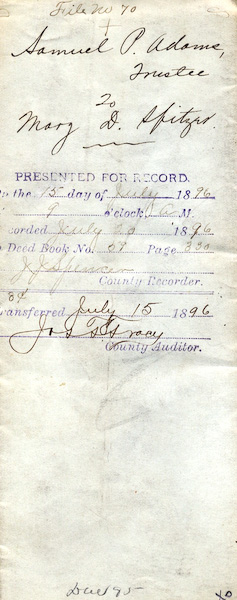 File No 70
Samuel P. Adams,
Trustee
To
Mary D. Spitzer.
PRESENTED FOR RECORD.
the 15 day of July 1896
9 o'clock A M.
corded July 20 1896
Deed Book No. 57 Page 330
County Recorder.
ransferred July 15 1896
Jos T Tracy
County Auditor.